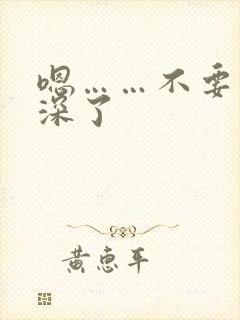 嗯……不要
深了
黄惠平